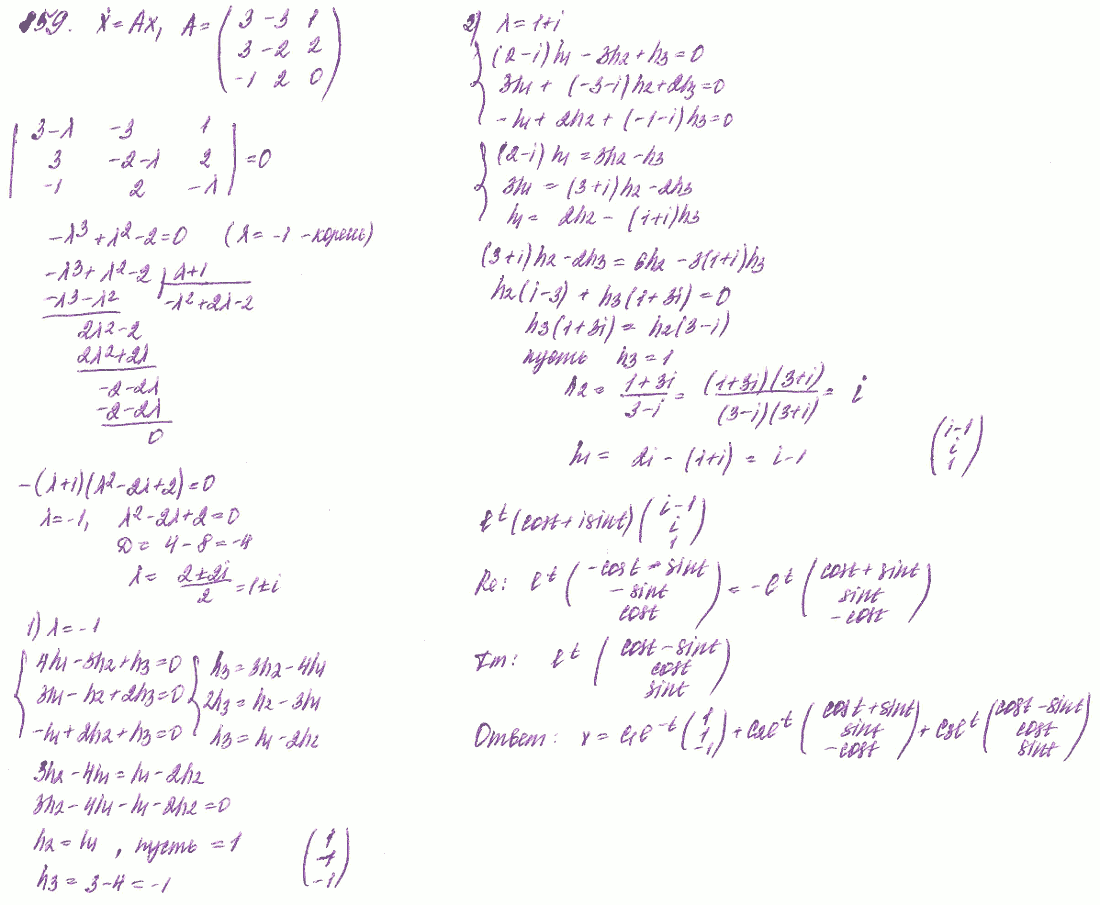 859. ẋ = Ax, A = ( 3 -3 1
3 -2 2
-1 2 0 )
| 3-λ -3 1
3 -2-λ 2
-1 2 -λ | = 0
-λ³+λ²-2=0 (λ= -1 - корень)
-λ³+λ²-2 | λ+1
-λ³-λ² -λ²+2λ-2
2λ²-2
2λ²+2λ
-2-2λ
-2-2λ
0
-(λ+1)(λ²-2λ+2)=0
λ=-1, λ²-2λ+2=0
D= 4-8=-4
λ= (2±2i)/2 =1±i
1) λ=-1
{ 4h₁-3h₂+h₃=0 { h₃=3h₂-4h₁
3h₁-h₂+2h₃=0 2h₃=h₂-3h₁
-h₁+2h₂+h₃=0 h₃=h₁-2h₂
3h₂-4h₁=h₁-2h₂
3h₂-4h₁-h₁-2h₂=0
h₂=h₁, пусть =1 ( 1
1
-1 )
h₃= 3-4=-1
2) λ=1+i
{ (2-i)h₁-3h₂+h₃=0
3h₁+(-3-i)h₂+2h₃=0
-h₁+2h₂+(-1-i)h₃=0
{ (2-i)h₁=3h₂-h₃
3h₁=(3+i)h₂-2h₃
h₁= 2h₂-(1+i)h₃
(3+i)h₂-2h₃=6h₂-3(1+i)h₃
h₂(i-3)+h₃(1+3i)=0
h₃(1+3i)=h₂(3-i)
пусть h₃=1
h₂= (1+3i)/(3-i) = (1+3i)(3+i)/(3-i)(3+i) = i
h₁= 2i-(1+i)=i-1 ( i-1
i
1 )
eᵗ(cost+isint) ( i-1
i
1 )
Re: eᵗ ( -cost-sint
-sint
cost ) = -eᵗ ( cost+sint
sint
-cost )
Im: eᵗ ( cost-sint
cost
sint )
Ответ: x=c₁e⁻ᵗ ( 1
1
-1 ) +c₂eᵗ ( cost+sint
sint
-cost ) +c₃eᵗ ( cost-sint
cost
sint )